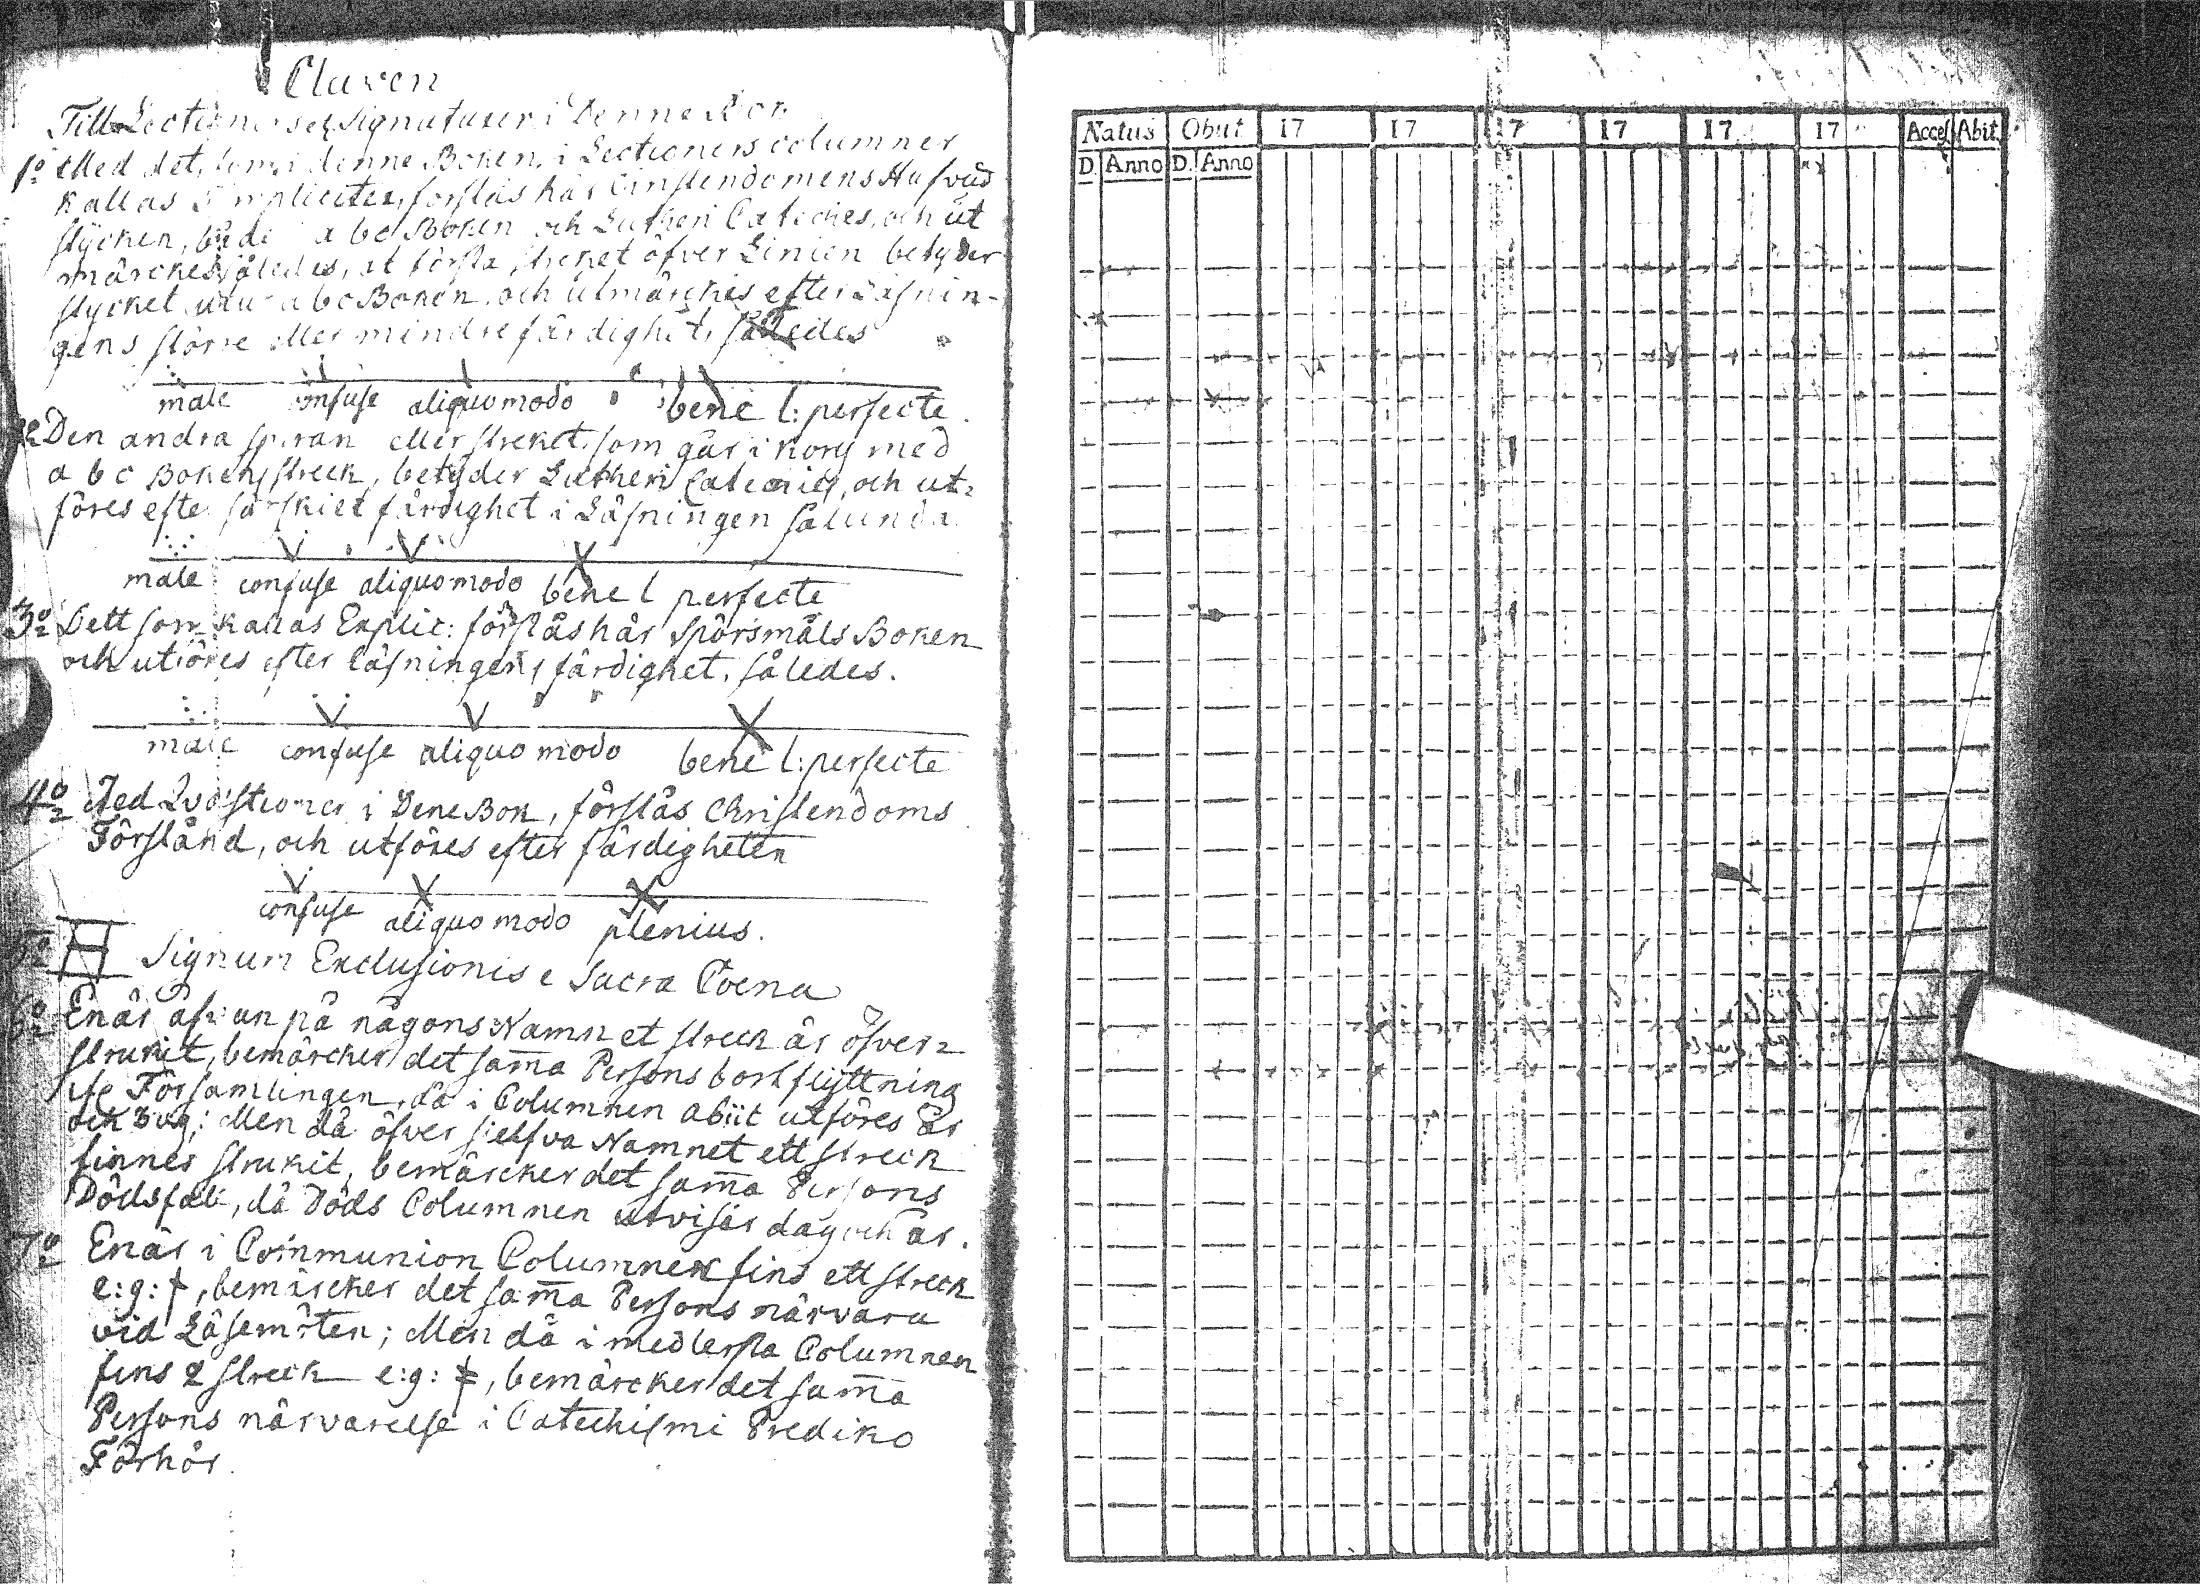 Claven
Till Lectioners Signaturer i Denne Bok
1o Med det, som i denne Boken, i Lectioners columner
kallas Simpliciter, förstås här Christendomens Hufvud
stÿcken, både abc Boken och Lutheri Cateches, och ut
märckes således, at första strecket öfver Linien betyder
stycket utur abc Boken, och utmärckes efter Läsnin-
gens större eller mindre färdighet, således
male confuse aliquomodo bene l: perfecte.
2o Den andra sparan eller strecket, som går i kors med
abc Bokens streck, betyder Lutheri Cateches, och ut-
föres efter särskiet färdighet i Läsningen sålunda
male confuse aliquomodo bene l perfecte
3o Dett som kallas Explic: förstås här Spörsmåls Boken
och utföres efter läsningens färdighet, således.
male confuse aliquo modo bene l: perfecte
4o Med Qvæstioner i Dene Bok, förstås Christendoms
Förstånd, och utföres efter färdigheten
confuse aliquo modo plenius.
5o Signum Exclusionis e Sacra Coena
6o Enär åfvan på någons Namn et streck är öfver-
strukit, bemärcker det sam̄a Persons bortflÿttning
Församlingen, då i Columnen abiit utföres år
och dag; Men då öfver sielfva Namnet ett streck
finnes strukit, bemärcker det sam̄a Persons
Dödsfall, då Döds Columnen utvisar dag och år.
7o Enär i Communion Columnen fins ett streck
e:g: ꝉ, bemärcker det sam̄a Persons närvara
vid Läsemöten; Men då i medlersta Columnen
fins 2 streck e:g: ǂ, bemärcker det sam̄a
Persons närvarelse i Catechismi Prediko
Förhör.
Natus Obiit 17 17 17 17 17 17 Acces Abit.
D. Anno D. Anno